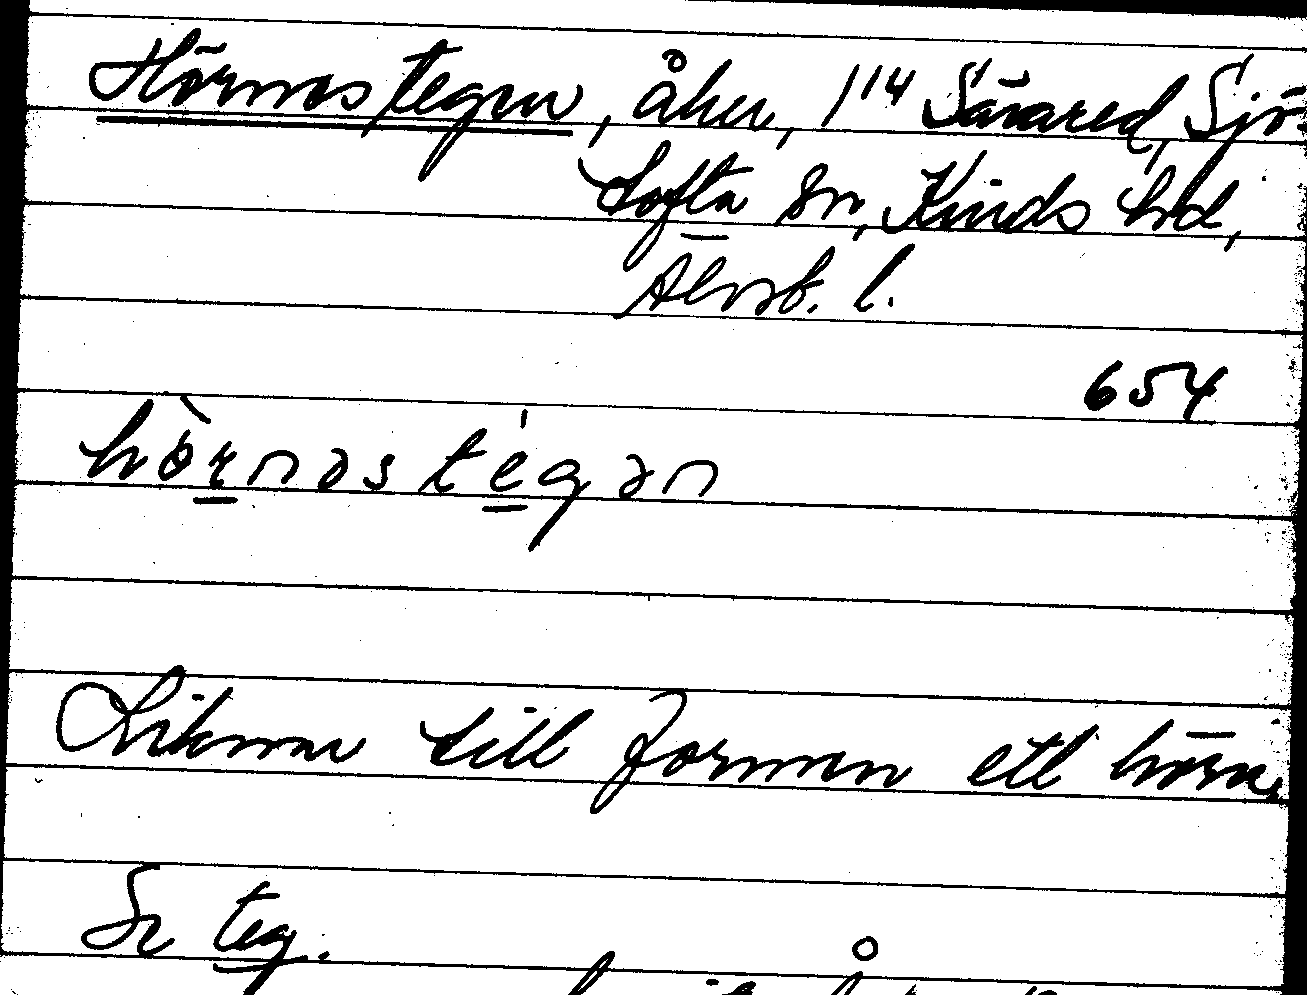 Hörnastegen, åker, 1/14 Särared, Sjö-
tofta sn, Kinds hd,
Älvsb. l.
654
hò̈rnas tégən
Liknar till formen ett hörn.
Se teg.